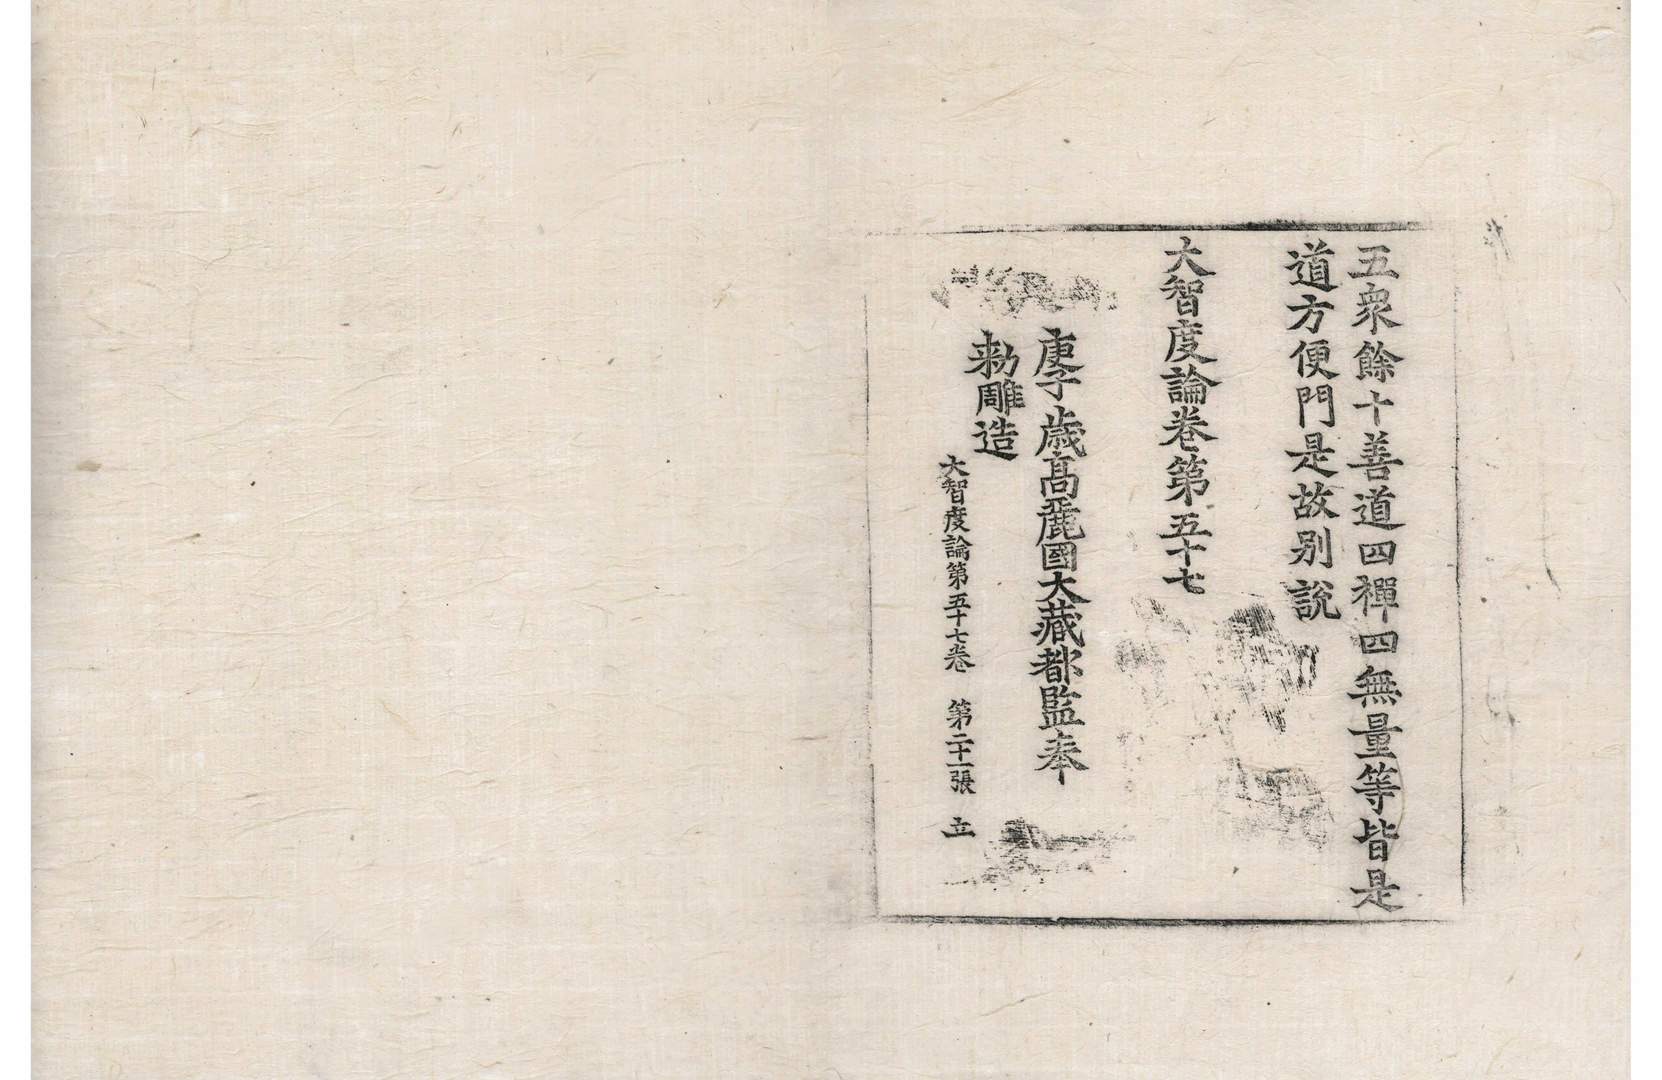 五衆餘十善道四禪四無量等皆是
道方便門是故别說
大智度論卷第五十七
庚子歳高麗國大藏都監奉
勑雕造
大智度論第五十七卷　第二十一張　立